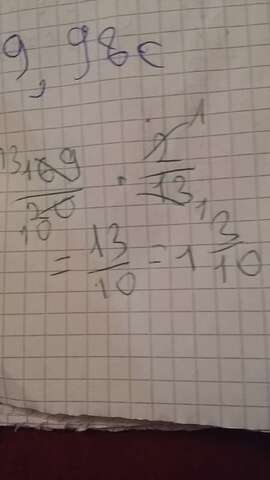 9, 98c
13 169 / 20 10 · 2 1 / 13 1
= 13/10 = 1 3/10